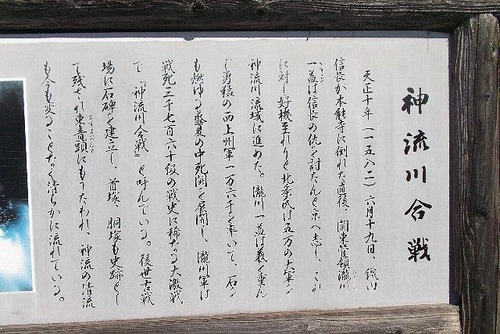 神流川合戦
天正十年（一五八二）六月十九日、織田
信長が本能寺に倒れた直後、関東管領瀧川
一益は信長の仇を討たんと京へ志し、これ
に対し好機至れりと北条氏は五万の大軍を
神流川流域に進めた。瀧川一益は義を重ん
じ勇猿の西上州軍一万六千を率いて、石が
も燃ゆる盛夏の中死闘を展開し、瀧川軍は
戦死三千七百六十級の戦史に稀なる大激戦
で「神流川合戦」と呼んでいる。後世古戦
場に石碑を建立し、首塚、胴塚も史跡とし
て残され東音頭にもうたわれ、神流の清流
も今も変ることなく清らかに流れている。